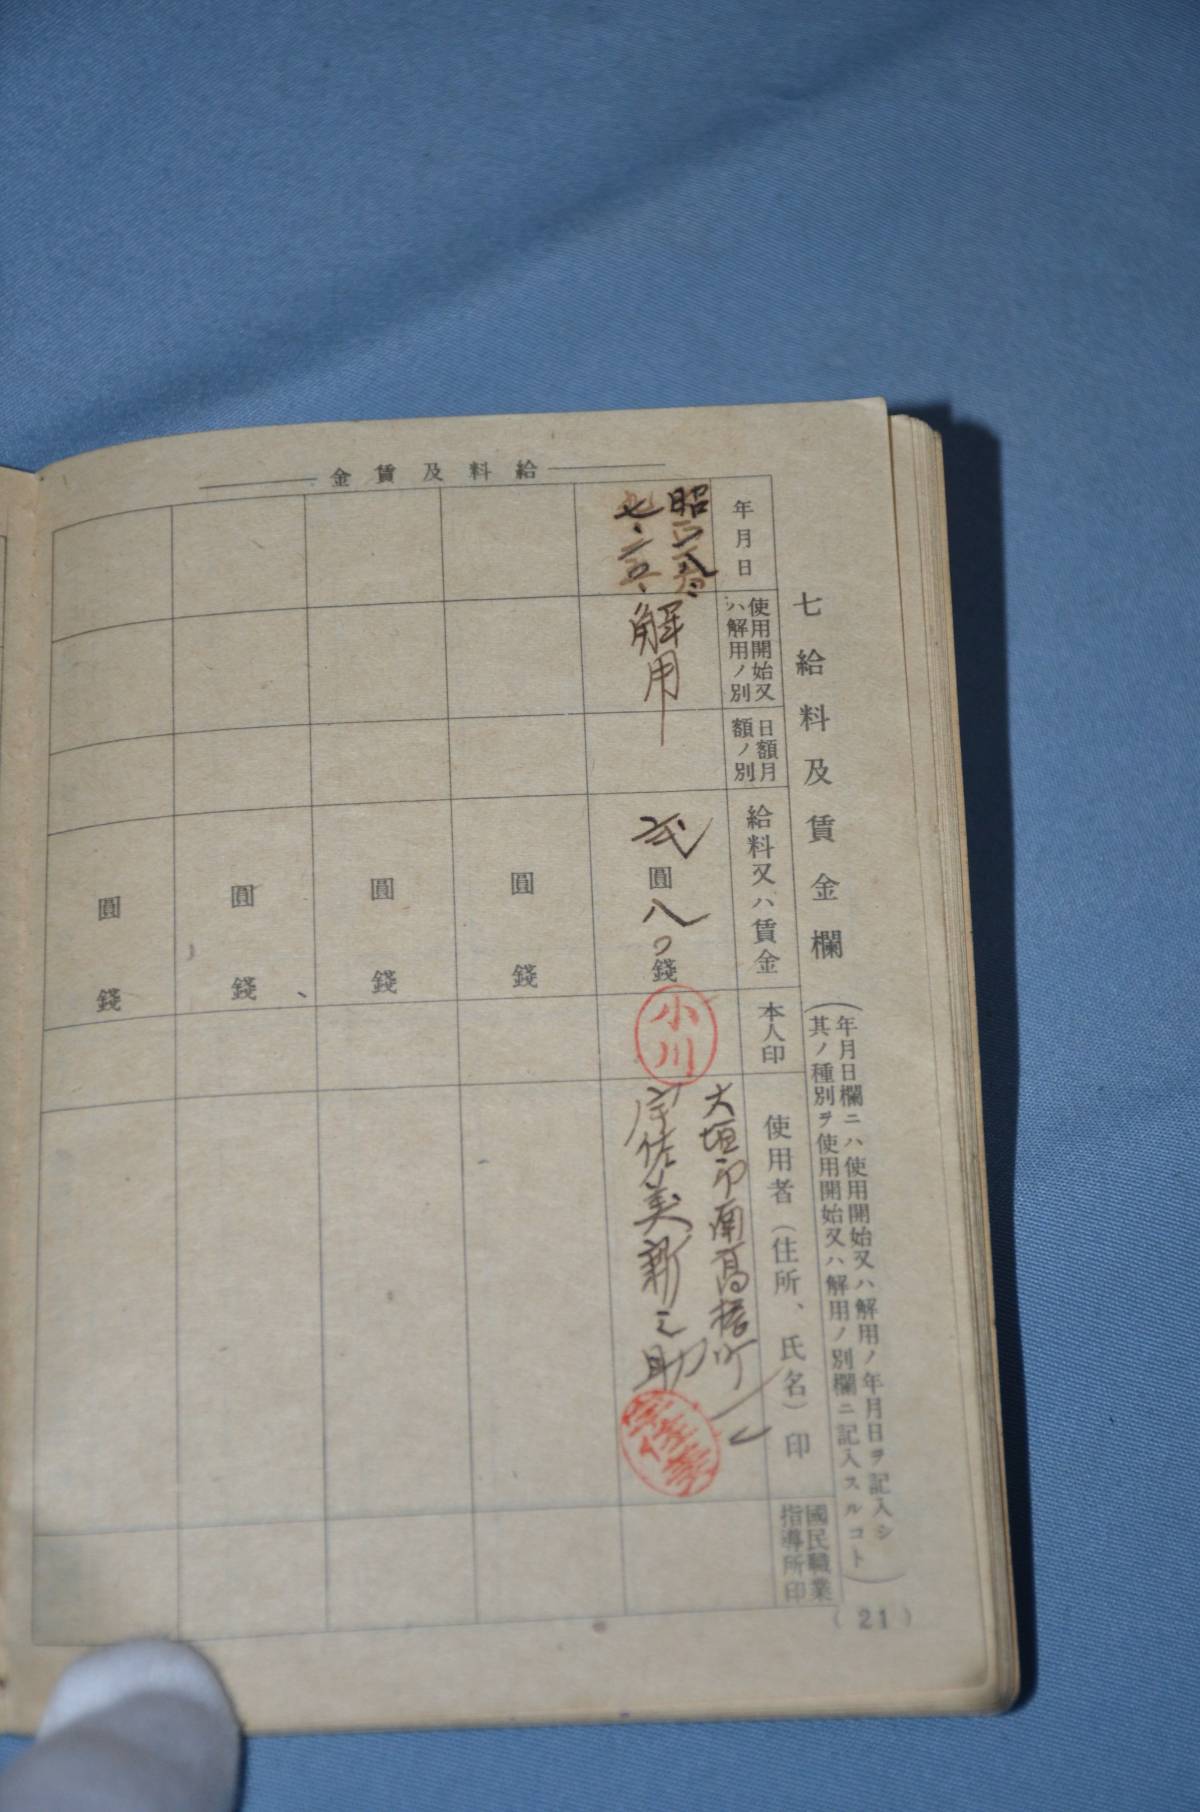 七 給料及賃金欄
(年月日欄ニハ使用開始又ハ解用ノ年月日ヲ記入シ
其ノ種別ヲ使用開始又ハ解用ノ別欄ニ記入スルコト)
(21)
給料及賃金
年月日
使用開始又
ハ解用ノ別
日額月
額ノ別
給料又ハ賃金
本人印
使用者(住所、氏名)印
國民職業
指導所印
昭
七、
解用
弐圓八〇錢
小川
大垣市南高橋町
宇佐美新之助
宇佐美
圓 錢
圓 錢
圓 錢
圓 錢